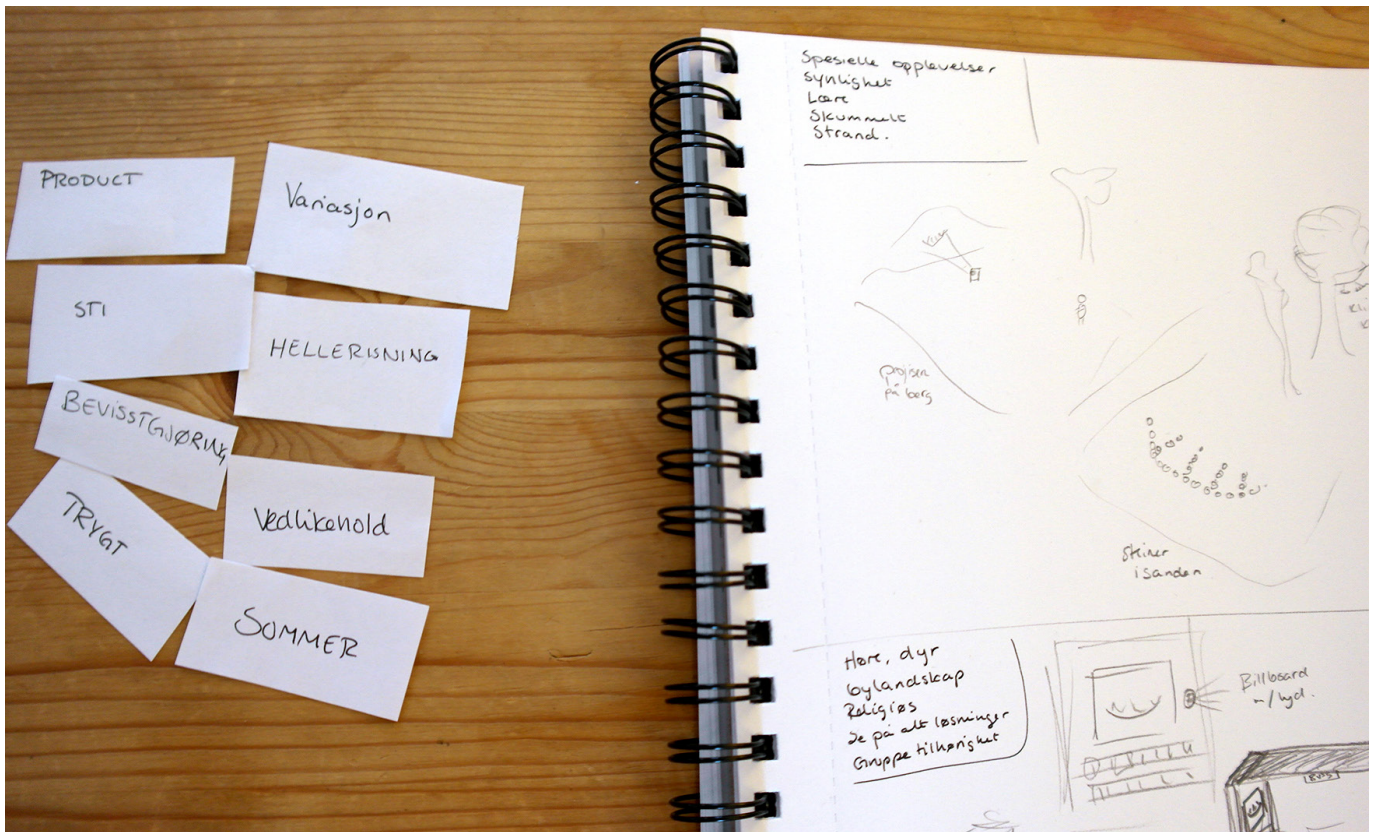 PRODUCT
Variasjon
STI
HELLERISNING
BEVISSTGJØRING
TRYGT
Vedlikehold
SOMMER
Spesielle opplevelser
synlighet
Lære
Skummelt
Strand.
på berg
Steiner
i sanden
Høre, dyr
bylandskap
Religiøs
Se på alt løsninger
Gruppetilhørighet
Billboard
m/lyd.
BUSS